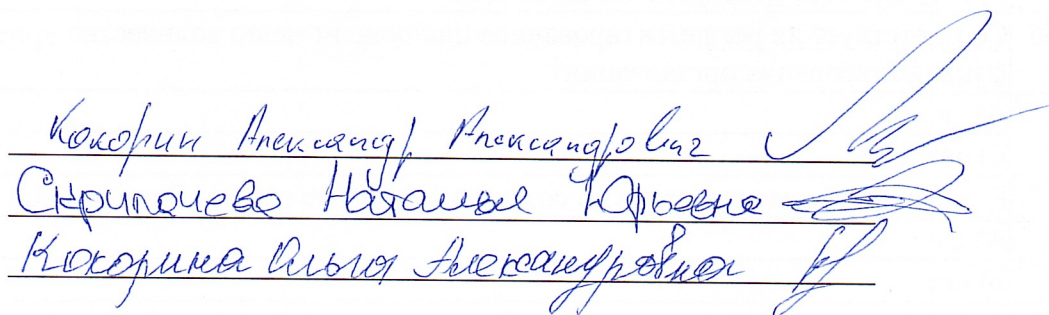 Кокорин Александр Александрович
Скрипачева Наталья Юрьевна
Кокорина Ольга Александровна